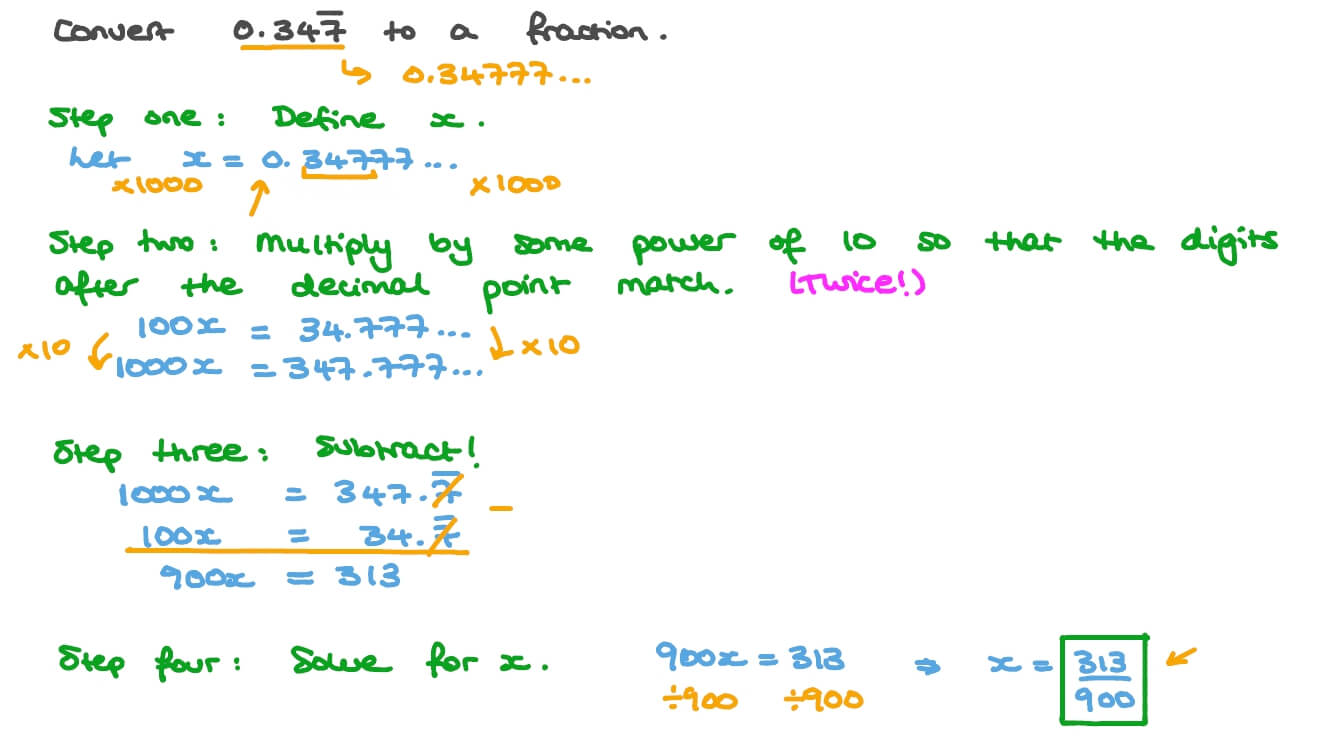 Convert 0.347̅ to a fraction.
↳ 0.34777...
Step one: Define x.
Let x = 0.34777...
×1000 ×1000
Step two: Multiply by some power of 10 so that the digits
after the decimal point match. (Twice!)
100x = 34.777...
×10 ×10
1000x = 347.777...
Step three: Subtract!
1000x = 347.7̅ −
100x = 34.7̅
900x = 313
Step four: Solve for x. 900x = 313 ⇒ x = 313/900
÷900 ÷900